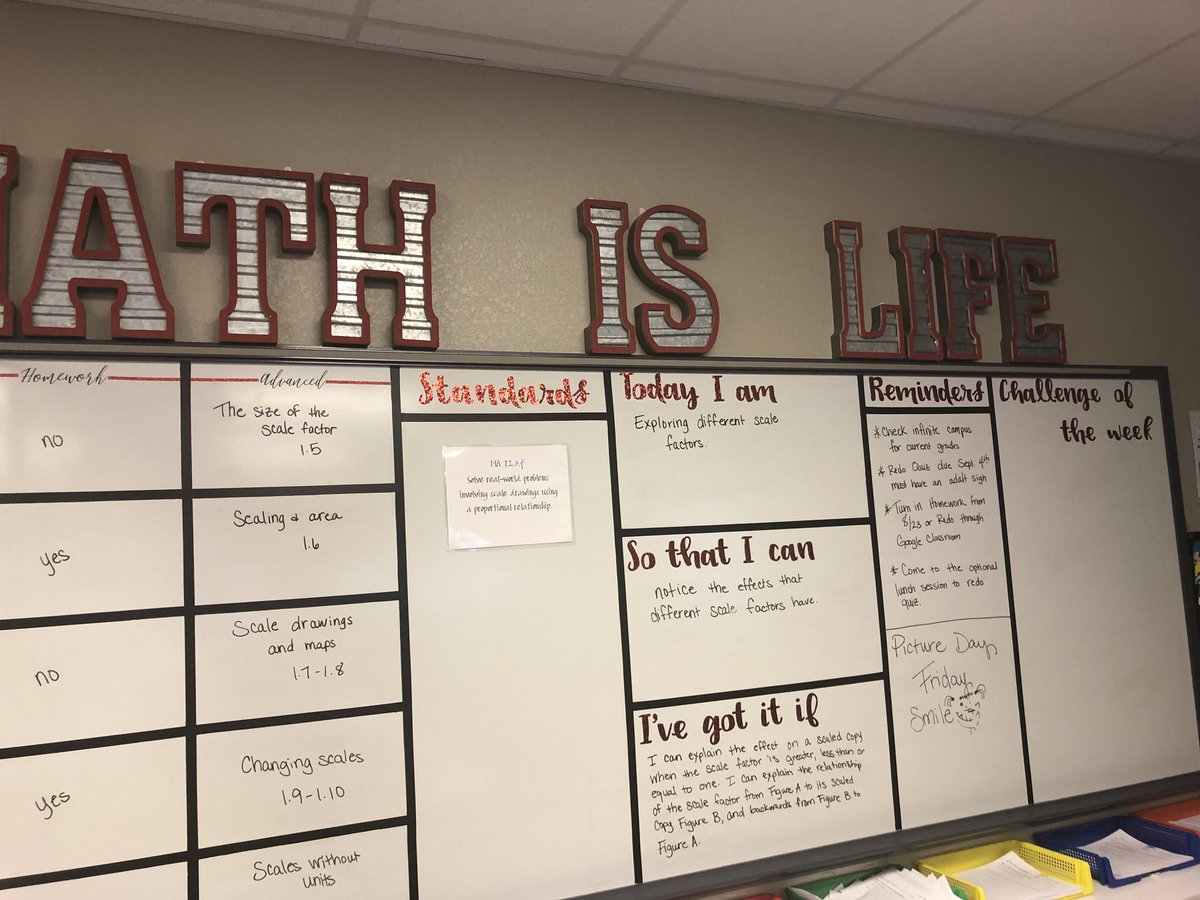 MATH IS LIFE
Homework
no
yes
no
yes
advanced
The size of the
scale factor
1.5
Scaling & area
1.6
Scale drawings
and maps
1.7-1.8
Changing scales
1.9-1.10
Scales without
units
Standards
MA 7.2.3.f
Solve real-world problems
involving scale drawings using
a proportional relationship.
Today I am
Exploring different scale
factors.
So that I can
notice the effects that
different scale factors have.
I've got it if
I can explain the effect on a scaled copy
when the scale factor is greater, less than or
equal to one. I can explain the relationship
of the scale factor from Figure A to its scaled
copy Figure B, and backwards from Figure B to
Figure A.
Reminders
*Check infinite campus
for current grades
* Redo Quiz due Sept. 4th
must have an adult sign
* Turn in Homework from
8/23 or Redo through
Google Classroom
* Come to the optional
lunch session to redo
quiz.
Picture Day
Friday
Smile
Challenge of
the week